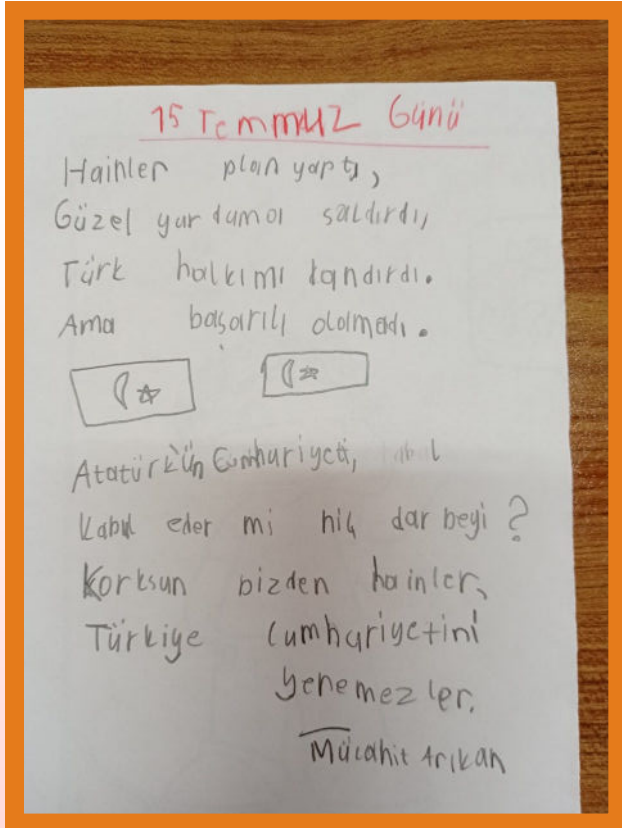 15 Temmuz Günü
Hainler plan yaptı,
Güzel yurduma saldırdı,
Türk halkımı kandırdı.
Ama başarılı olamadı.
Atatürk'ün Cumhuriyeti,
Kabul eder mi hiç darbeyi?
Korksun bizden hainler,
Türkiye Cumhuriyetini
yenemezler.
Mücahit Arıkan